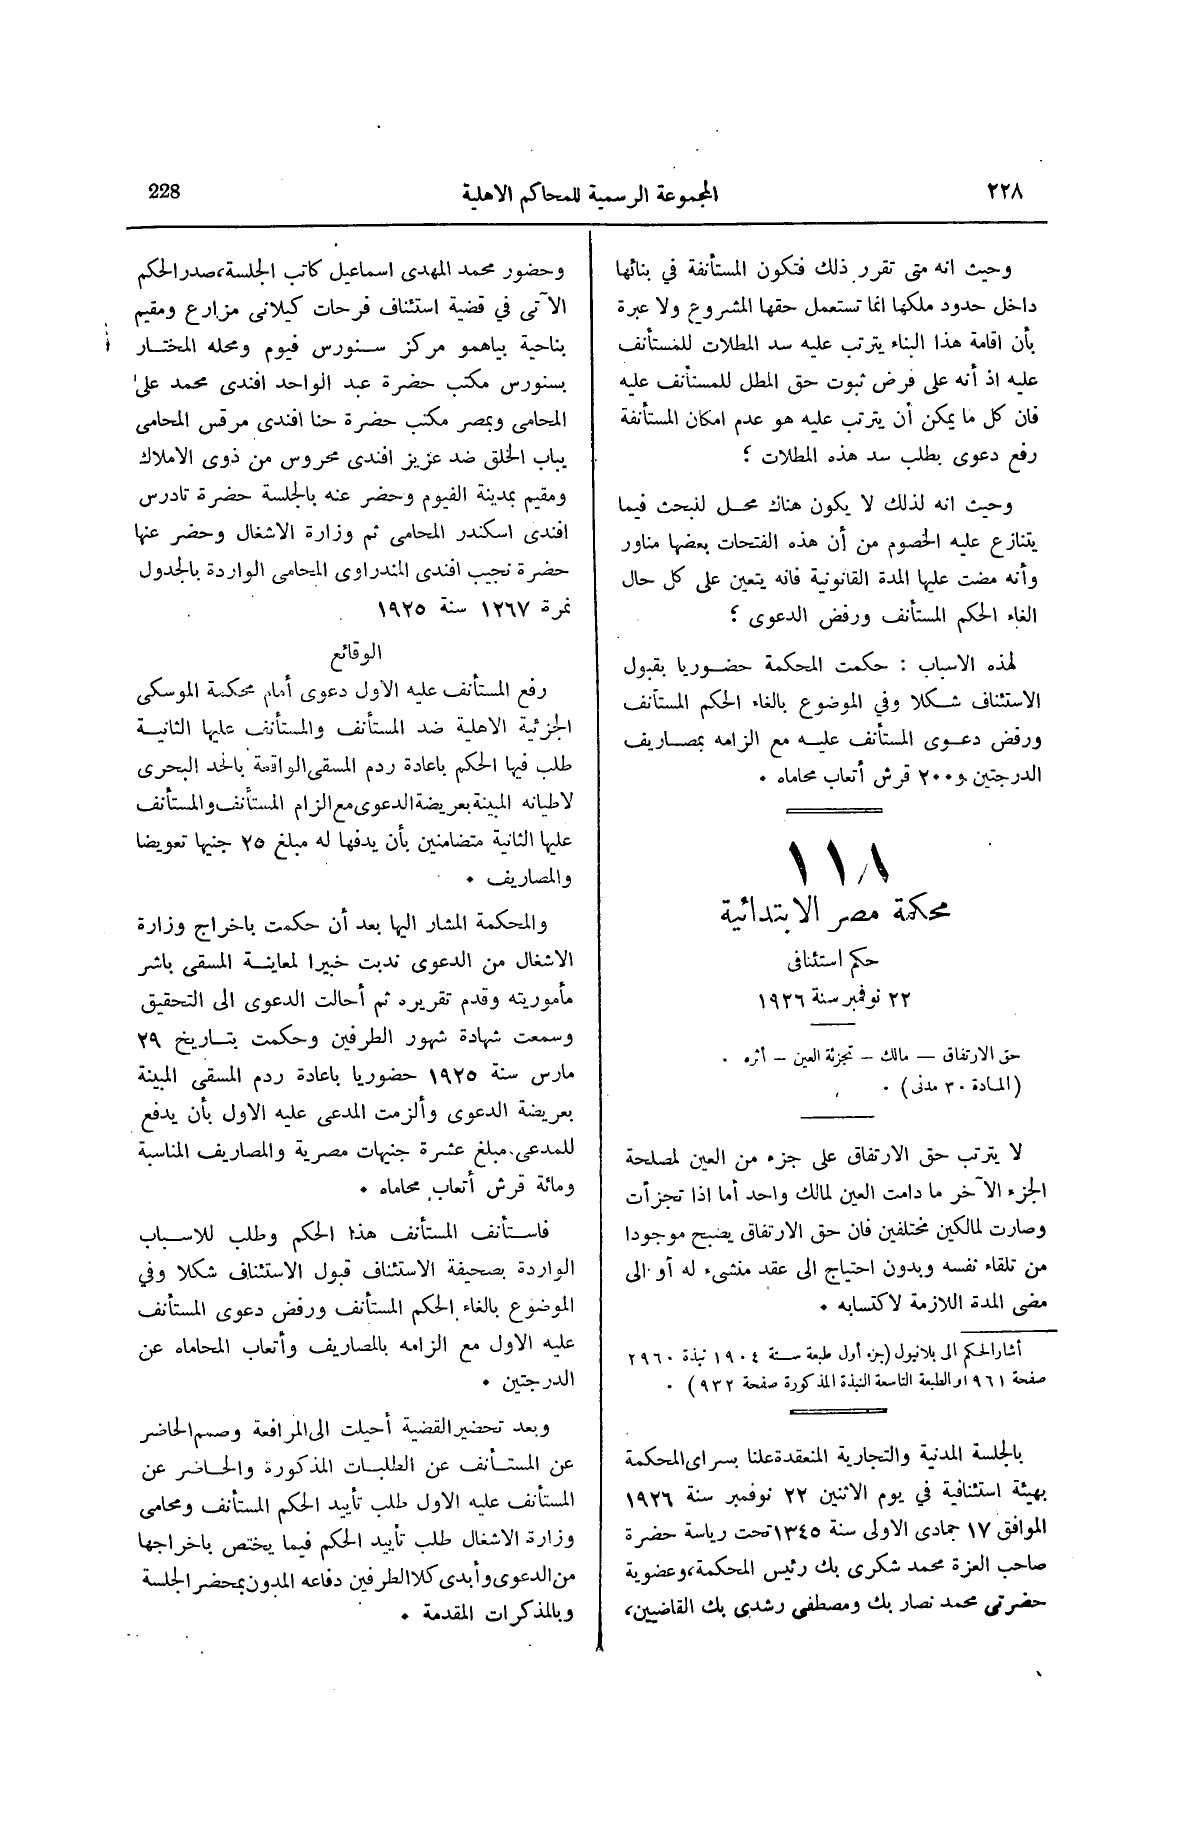 ٢٢٨ المجموعة الرسمية للمحاكم الاهلية 228
وحيث انه متى تقرر ذلك فتكون المستأنفة في بنائها
داخل حدود ملكها انما تستعمل حقها المشروع ولا عبرة
بأن اقامة هذا البناء يترتب عليه سد المطلات للمستأنف
عليه اذ أنه على فرض ثبوت حق المطل للمستأنف عليه
فان كل ما يمكن أن يترتب عليه هو عدم امكان المستأنفة
رفع دعوى بطلب سد هذه المطلات ؟
وحيث انه لذلك لا يكون هناك محل للبحث فيما
يتنازع عليه الخصوم من أن هذه الفتحات بعضها مناور
وأنه مضت عليها المدة القانونية فانه يتعين على كل حال
الغاء الحكم المستأنف ورفض الدعوى ؟
لهذه الاسباب : حكمت المحكمة حضوريا بقبول
الاستئناف شكلا وفي الموضوع بالغاء الحكم المستأنف
ورفض دعوى المستأنف عليه مع الزامه بمصاريف
الدرجتين و٢٠٠ قرش أتعاب محاماه .
١١٨
محكمة مصر الابتدائية
حكم استئنافى
٢٢ نوفمبر سنة ١٩٢٦
حق الارتفاق — مالك — تجزئة العين — أثره .
(المادة ٣٠ مدنى) .
لا يترتب حق الارتفاق على جزء من العين لمصلحة
الجزء الآخر ما دامت العين لمالك واحد أما اذا تجزأت
وصارت لمالكين مختلفين فان حق الارتفاق يصبح موجودا
من تلقاء نفسه وبدون احتياج الى عقد منشىء له أو الى
مضى المدة اللازمة لاكتسابه .
أشار الحكم الى بلانيول (جزء أول طبعة سنة ١٩٠٤ نبذة ٢٩٦٠
صفحة ٩٦١ والطبعة التاسعة النبذة المذكورة صفحة ٩٣٢) .
بالجلسة المدنية والتجارية المنعقدة علنا بسراى المحكمة
بهيئة استئنافية في يوم الاثنين ٢٢ نوفمبر سنة ١٩٢٦
الموافق ١٧ جمادى الاولى سنة ١٣٤٥ تحت رياسة حضرة
صاحب العزة محمد شكرى بك رئيس المحكمة، وعضوية
حضرتي محمد نصار بك ومصطفى رشدى بك القاضيين،
وحضور محمد المهدى اسماعيل كاتب الجلسة، صدر الحكم
الآتى في قضية استئناف فرحات كيلانى مزارع ومقيم
بناحية بياهمو مركز سنورس فيوم ومحله المختار
بسنورس مكتب حضرة عبد الواحد افندى محمد على
المحامى وبمصر مكتب حضرة حنا افندى مرقس المحامى
بباب الخلق ضد عزيز افندى محروس من ذوى الاملاك
ومقيم بمدينة الفيوم وحضر عنه بالجلسة حضرة تادرس
افندى اسكندر المحامى ثم وزارة الاشغال وحضر عنها
حضرة نجيب افندى المندراوى المحامى الواردة بالجدول
نمرة ١٢٦٧ سنة ١٩٢٥
الوقائع
رفع المستأنف عليه الاول دعوى أمام محكمة الموسكى
الجزئية الاهلية ضد المستأنف والمستأنف عليها الثانية
طلب فيها الحكم باعادة ردم المسقى الواقعة بالحد البحرى
لاطيانه المبينة بعريضة الدعوى مع الزام المستأنف والمستأنف
عليها الثانية متضامنين بأن يدفها له مبلغ ٢٥ جنيها تعويضا
والمصاريف .
والمحكمة المشار اليها بعد أن حكمت باخراج وزارة
الاشغال من الدعوى ندبت خبيرا لمعاينة المسقى باشر
مأموريته وقدم تقريره ثم أحالت الدعوى الى التحقيق
وسمعت شهادة شهور الطرفين وحكمت بتاريخ ٢٩
مارس سنة ١٩٢٥ حضوريا باعادة ردم المسقى المبينة
بعريضة الدعوى وألزمت المدعى عليه الاول بأن يدفع
للمدعى مبلغ عشرة جنيهات مصرية والمصاريف المناسبة
ومائة قرش أتعاب محاماه .
فاستأنف المستأنف هذا الحكم وطلب للاسباب
الواردة بصحيفة الاستئناف قبول الاستئناف شكلا وفي
الموضوع بالغاء الحكم المستأنف ورفض دعوى المستأنف
عليه الاول مع الزامه بالمصاريف وأتعاب المحاماه عن
الدرجتين .
وبعد تحضير القضية أحيلت الى المرافعة وصمم الحاضر
عن المستأنف عن الطلبات المذكورة والحاضر عن
المستأنف عليه الاول طلب تأييد الحكم المستأنف ومحامى
وزارة الاشغال طلب تأييد الحكم فيما يختص باخراجها
من الدعوى وأبدى كلا الطرفين دفاعه المدون بمحضر الجلسة
وبالمذكرات المقدمة .